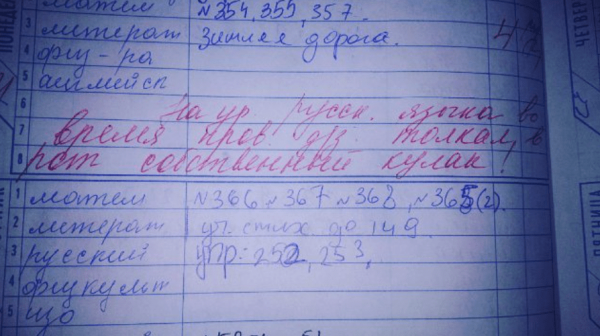 матем №354, 355, 357.
ПОНЕДЕ
3 литерат Зимняя дорога. 4
4 физ-ра
5 английск
6 На ур русск. языка во
7 время пров д/з толкал в
8 рот собственный кулак!
1 матем №366 №367 №368, №365(2).
2 литерат уч. стих. до 149.
3 русский упр: 252, 253,
4 физкульт
5 изо
ЧЕТВЕР
ПЯТНИЦА